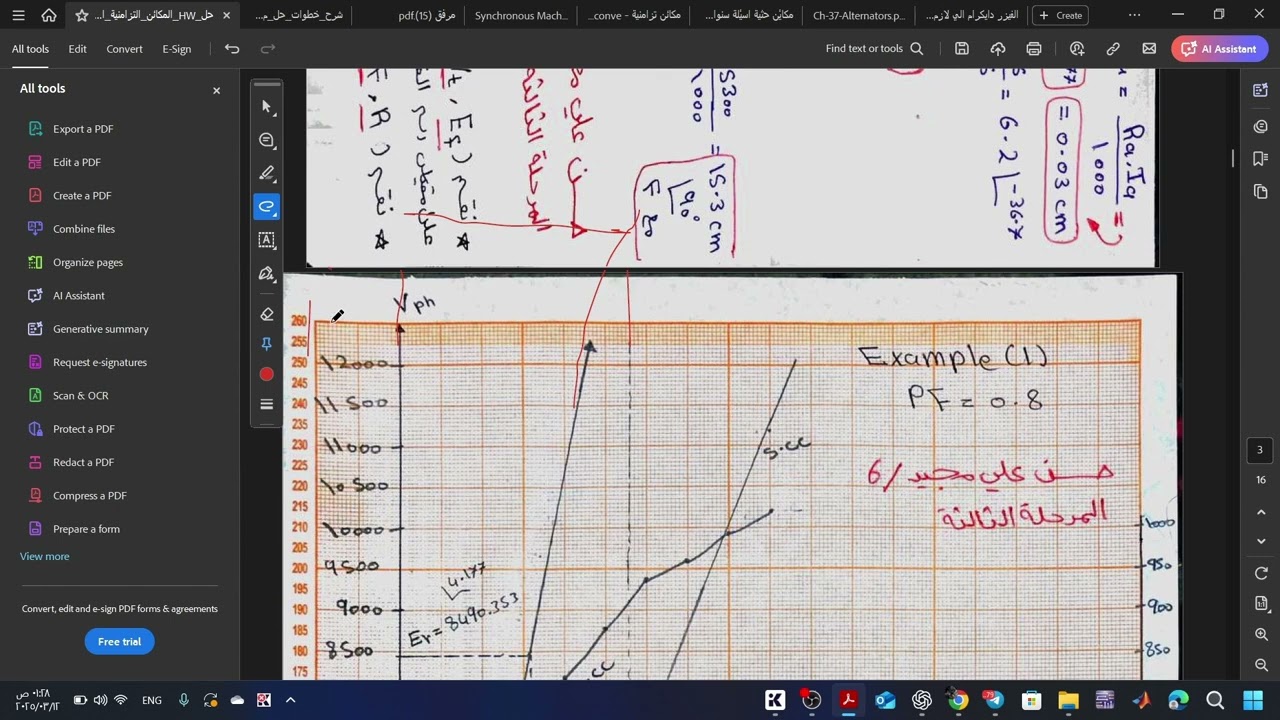 حل_HW_المكائن_التزامنية_ا...
شرح_خطوات_حل_م...
مرفق (15).pdf
Synchronous Mach...
مكائن تزامنية - conve...
مكائن حثية اسئلة سنوا...
Ch-37-Alternators.p...
الفيزر دايكرام الي لازم...
Create
All tools
Edit
Convert
E-Sign
Find text or tools
AI Assistant
All tools
Export a PDF
Edit a PDF
Create a PDF
Combine files
Organize pages
AI Assistant
Generative summary
Request e-signatures
Scan & OCR
Protect a PDF
Redact a PDF
Compress a PDF
Prepare a form
View more
Convert, edit and e-sign PDF forms & agreements
Free trial
Ra.Ia
1000
= 0.03 cm
= 6.2 -36.7
5300
= 15.3 cm
90°
المرحلة الثالثة
Vph
Example (1)
PF = 0.8
حسن علي مجيد / 6
المرحلة الثالثة
S.CC
4.177
Er= 8490.353
260
255
250
245
240
235
230
225
220
215
210
205
200
195
190
185
180
175
12000
11500
11000
10500
10000
9500
9000
8500
1000
950
900
850
3
16
ENG
79
٠١:٢٨ ص
٢٠٢٥/٠٣/١٢